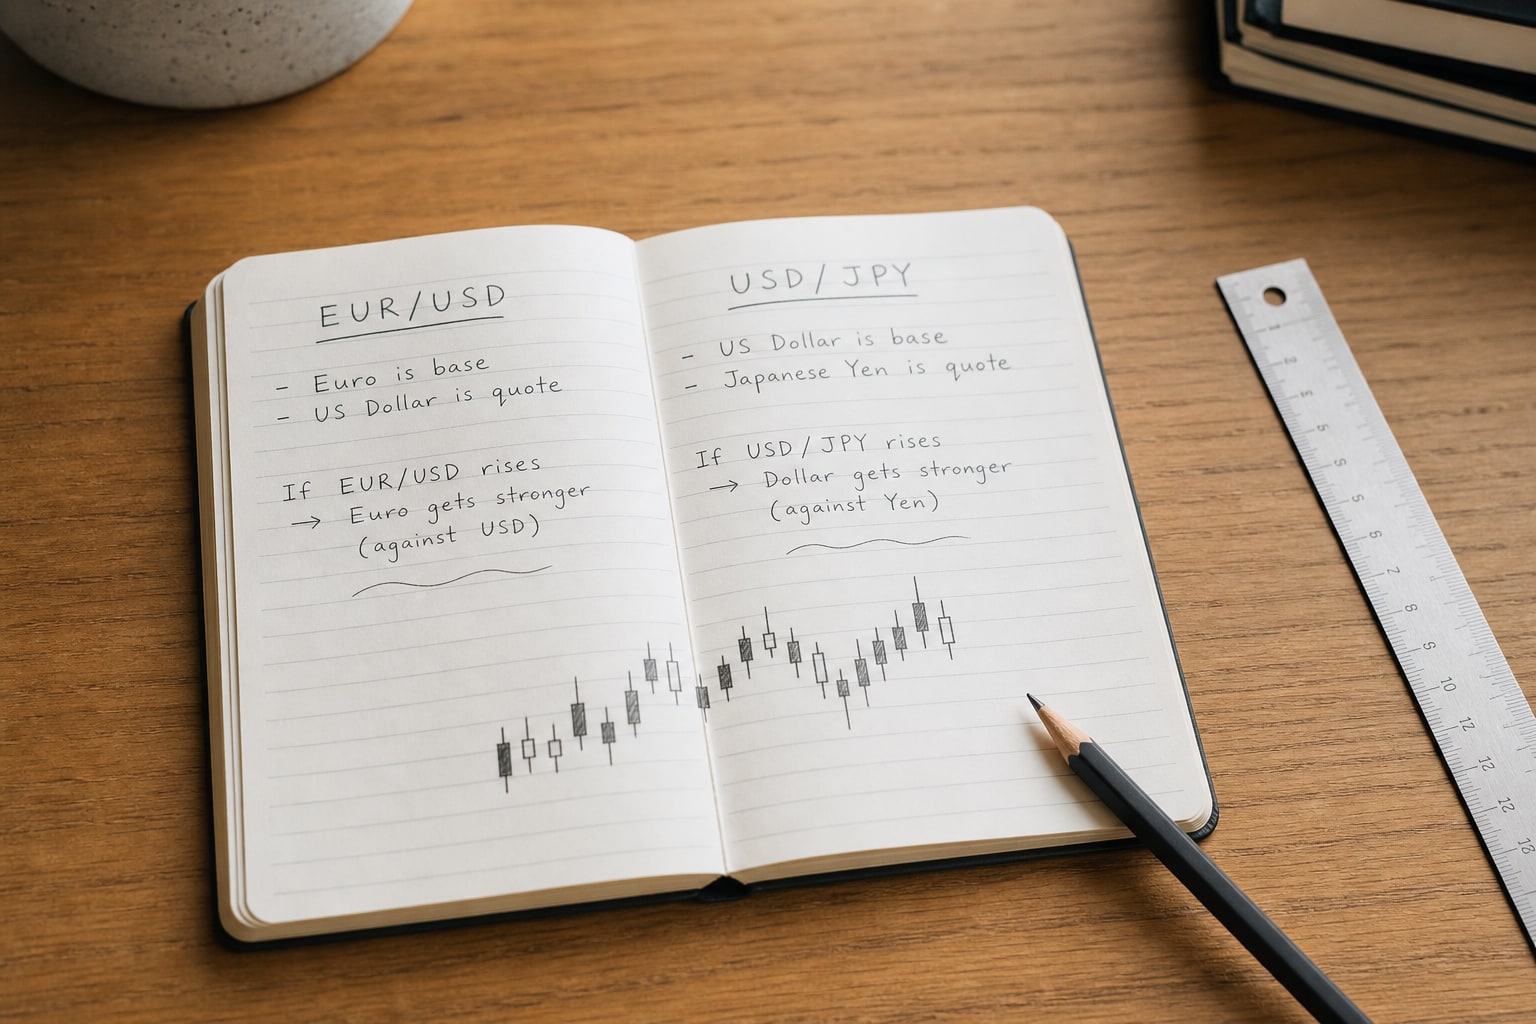 EUR/USD
- Euro is base
- US Dollar is quote
If EUR/USD rises
→ Euro gets stronger
(against USD)
USD/JPY
- US Dollar is base
- Japanese Yen is quote
If USD/JPY rises
→ Dollar gets stronger
(against Yen)